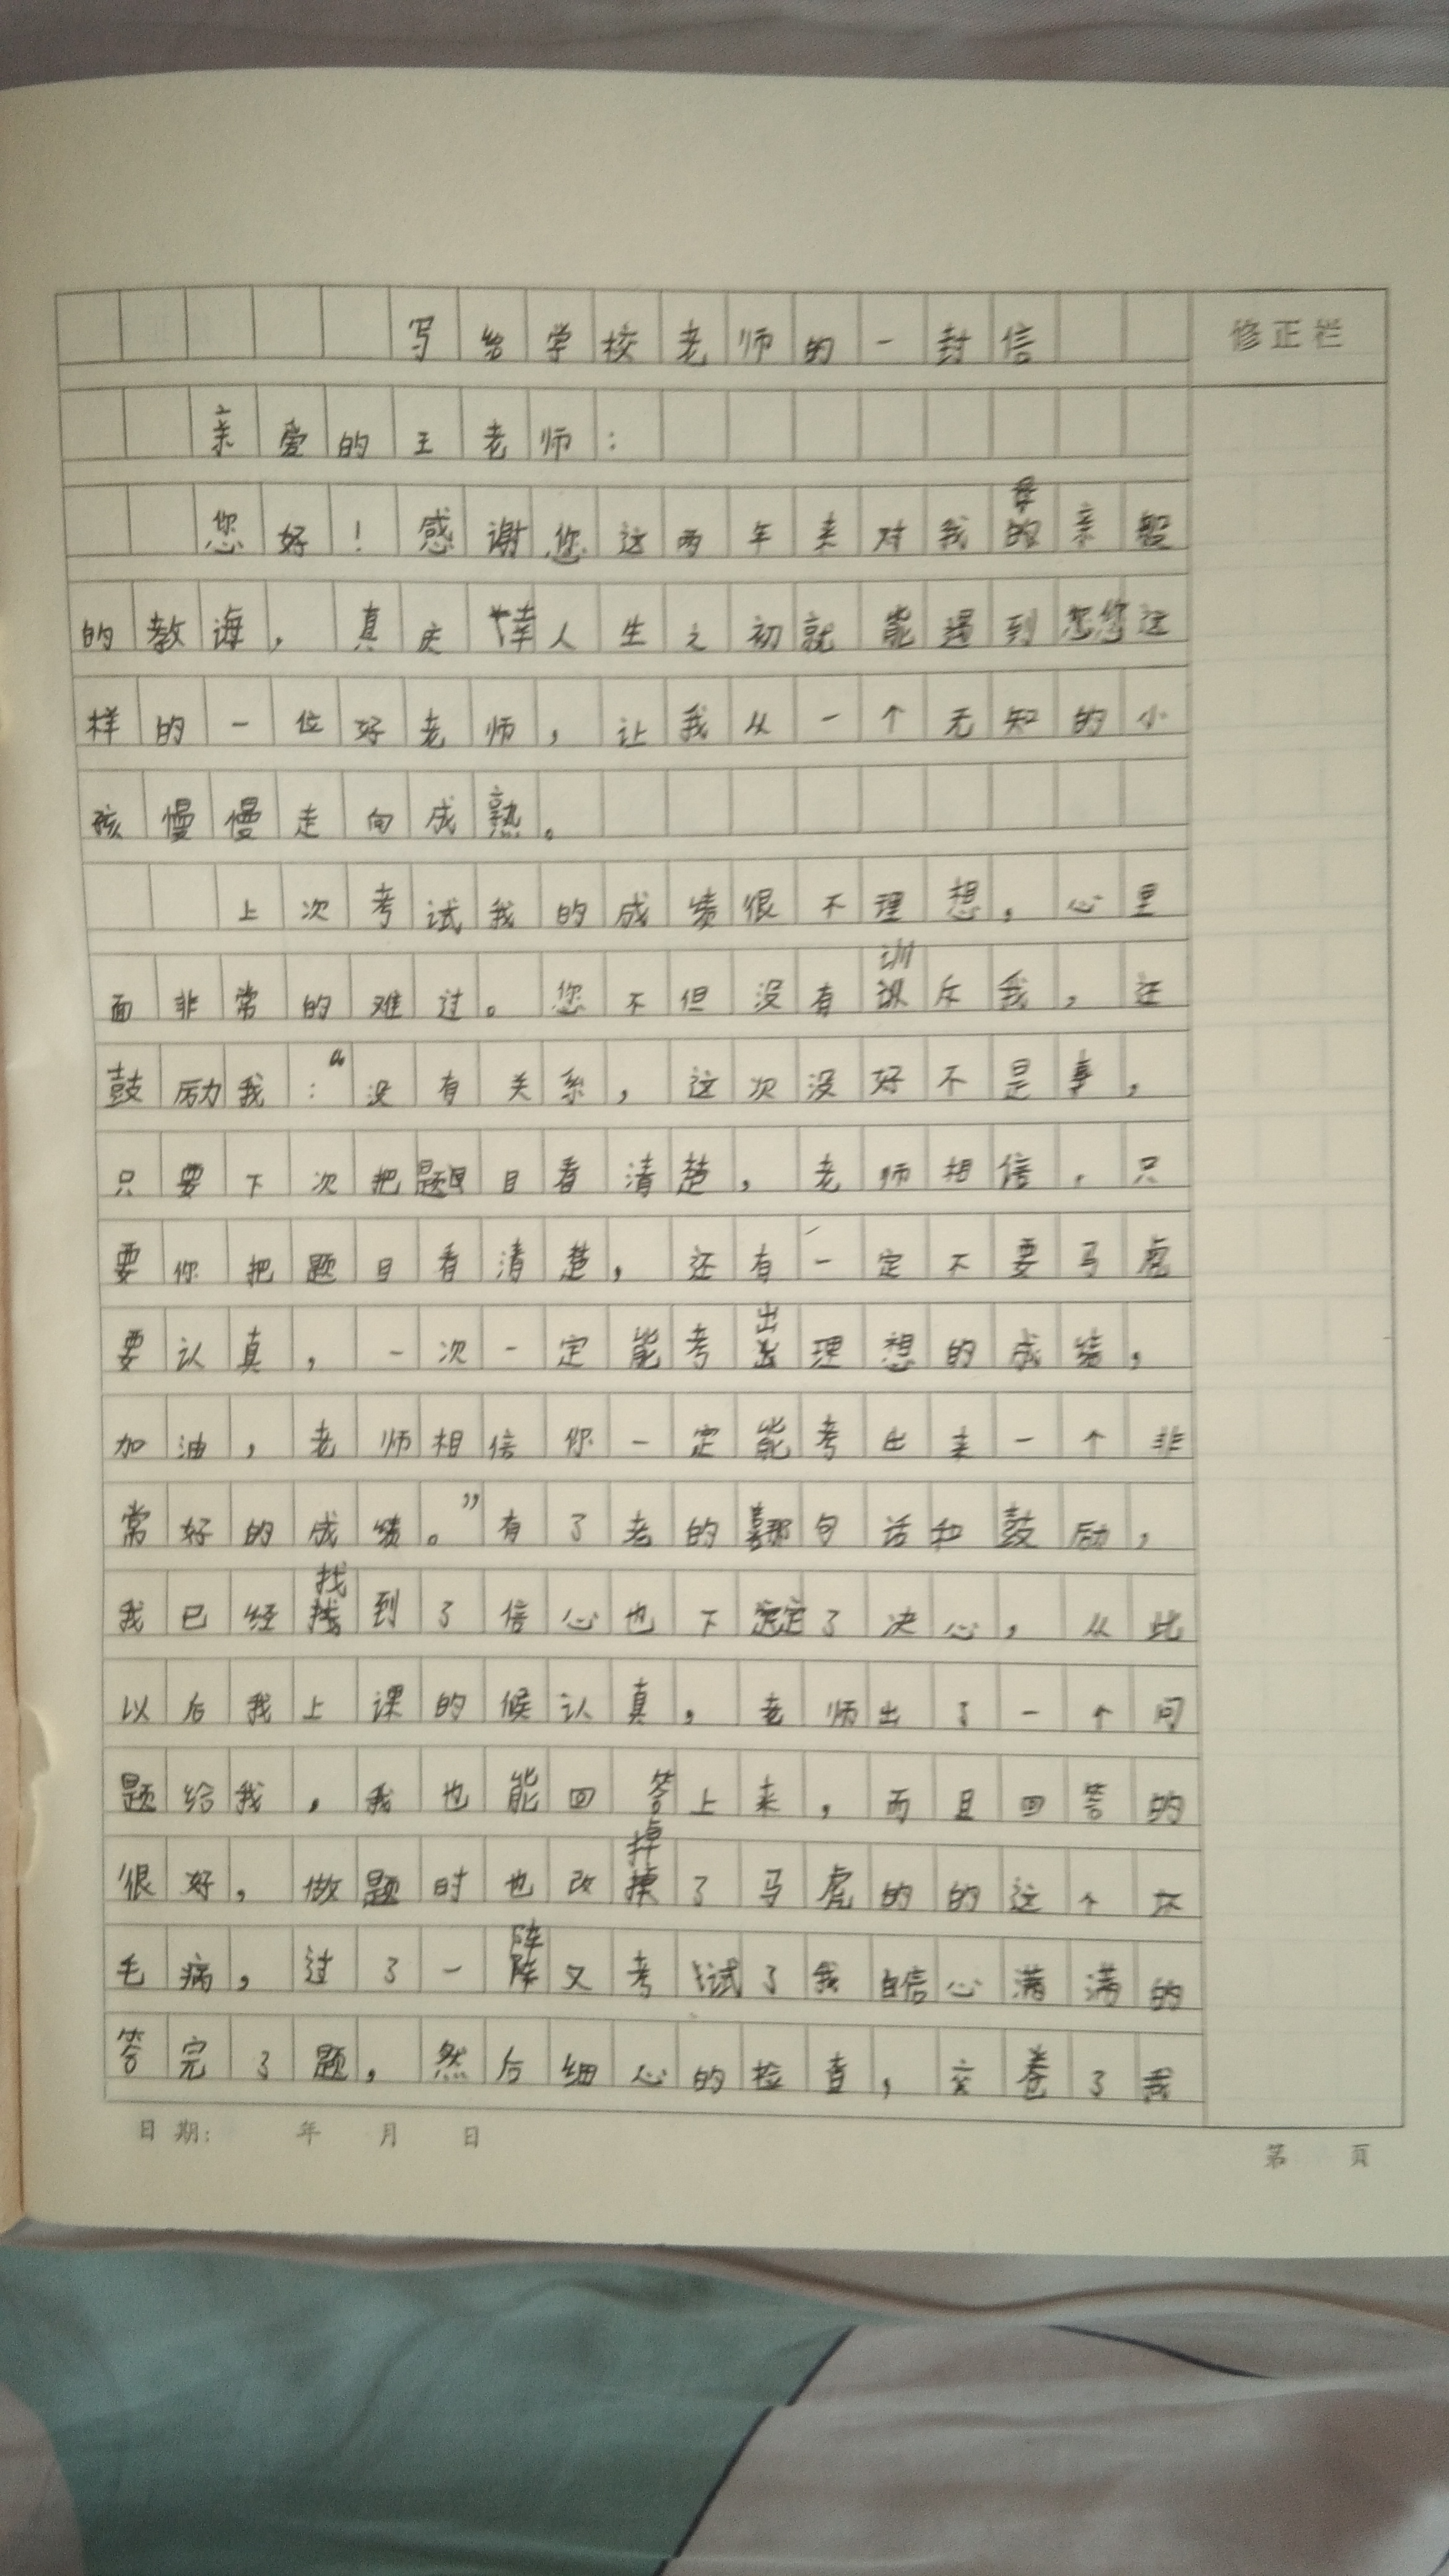 写给学校老师的一封信
修正栏
亲爱的王老师:
您好!感谢您这两年来对我母亲般
的教诲,真庆幸人生之初就能遇到您这
样的一位好老师,让我从一个无知的小
孩慢慢走向成熟。
上次考试我的成绩很不理想,心里
面非常的难过。您不但没有训斥我,还
鼓励我:“没有关系,这次没好不是事,
只要下次把题目看清楚,老师相信,只
要你把题目看清楚,还有一定不要马虎
要认真,一次一定能考出理想的成绩,
加油,老师相信你一定能考出来一个非
常好的成绩。”有了老的那句话和鼓励,
我已经找到了信心也下定了决心,从此
以后我上课的候认真,老师出了一个问
题给我,我也能回答上来,而且回答的
很好,做题时也改掉了马虎的的这个坏
毛病,过了一阵又考试了我自信心满满的
答完了题,然后细心的检查,交卷了我
日期: 年 月 日
第 页